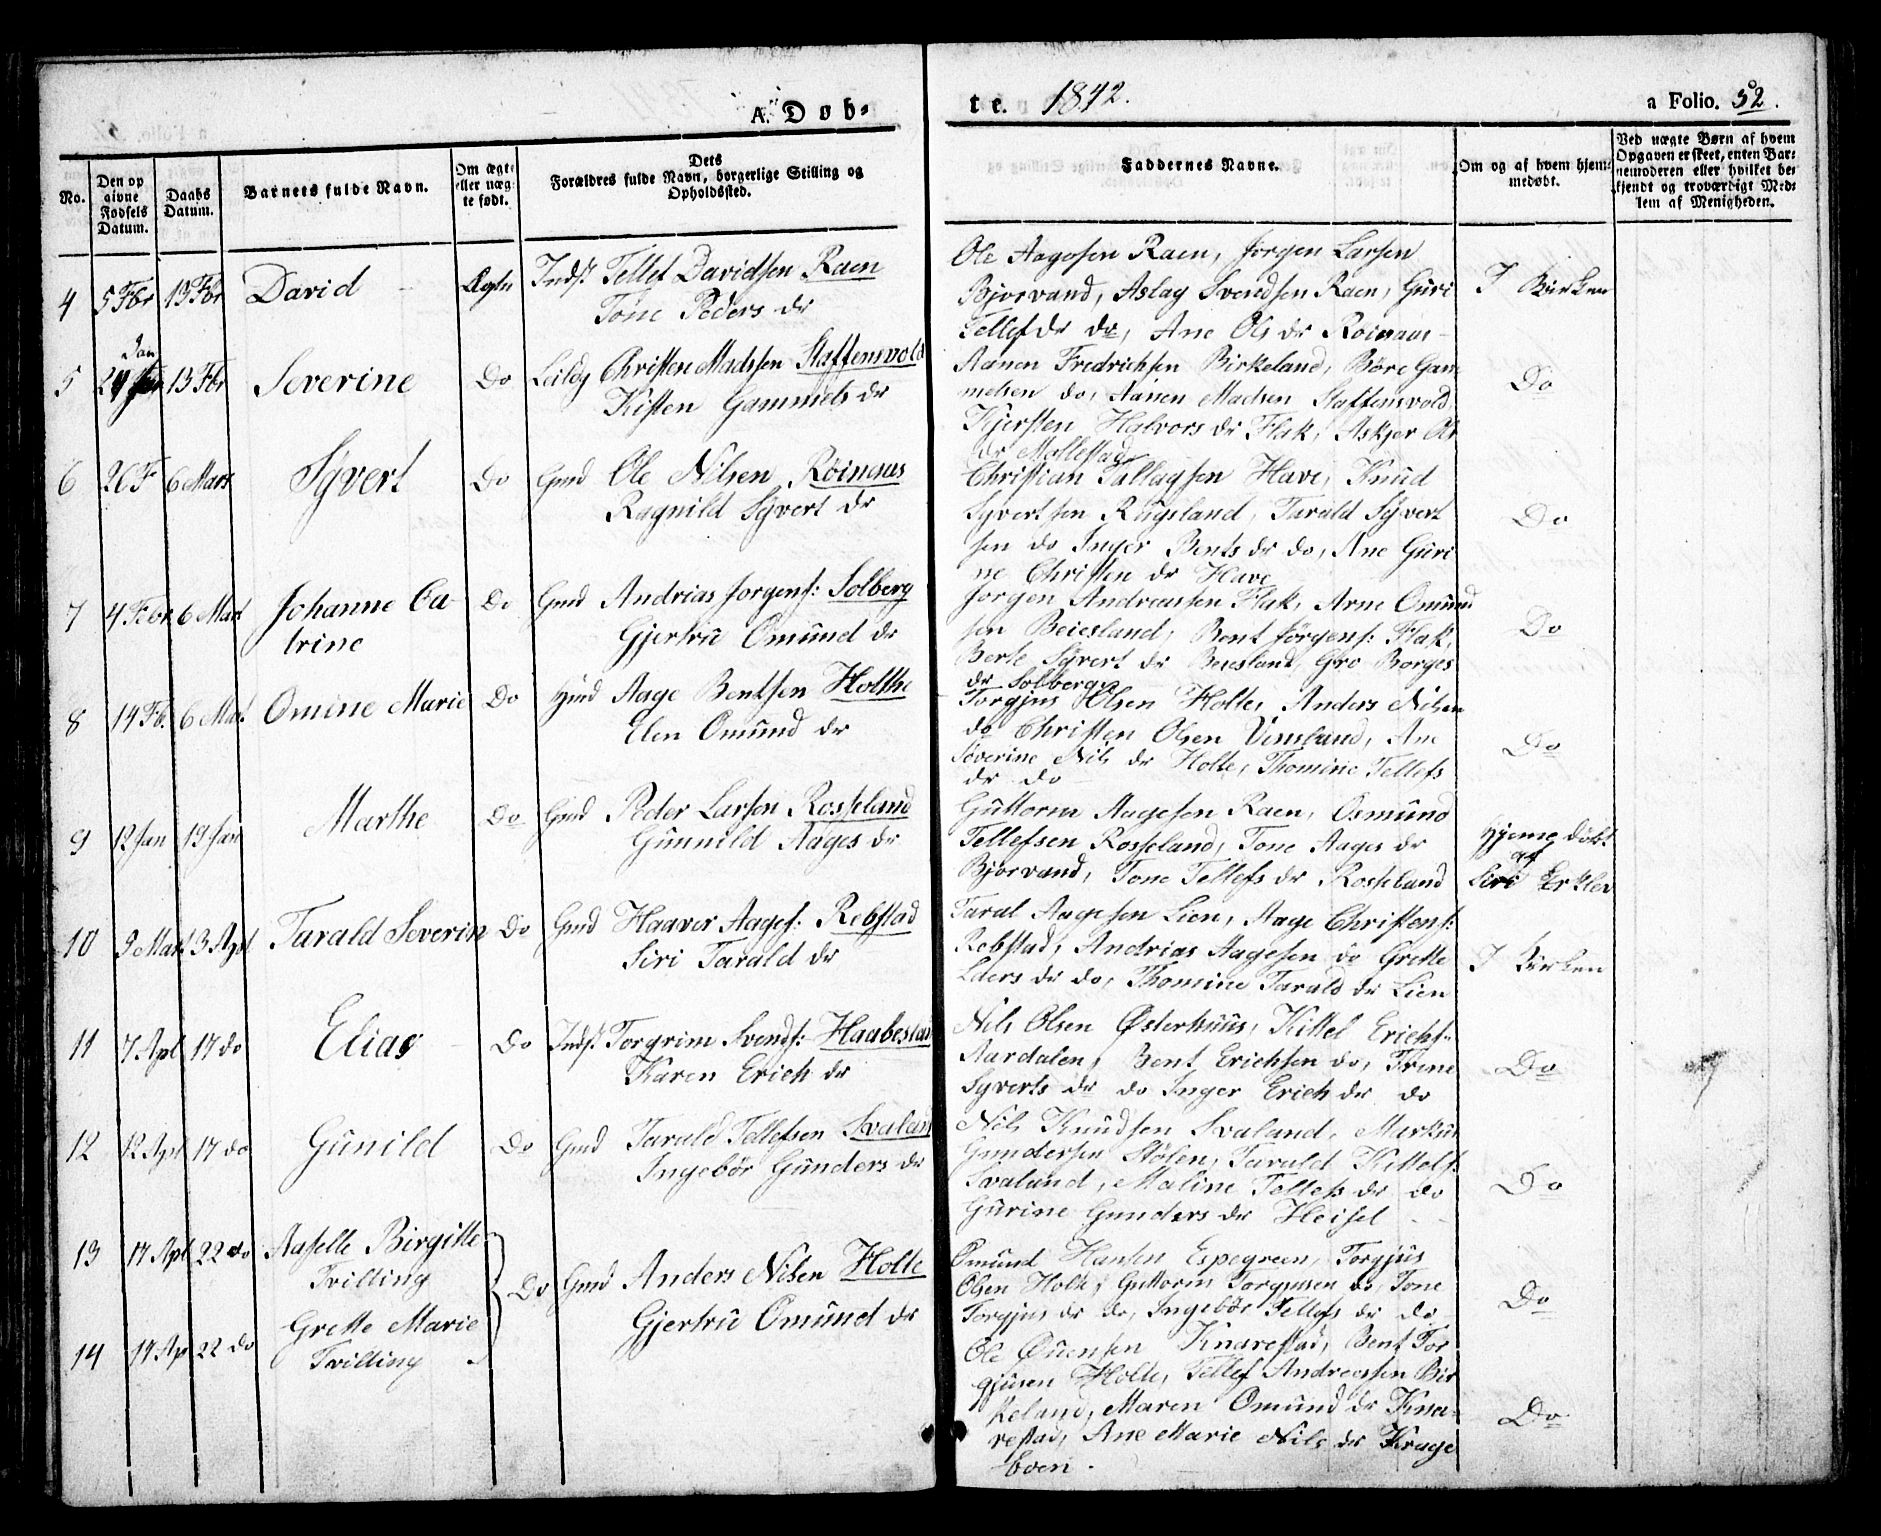 A. Döb-
te. 1842.
a Folio. 52.
No.
Den op
givne
Födsels
Datum.
Daabs
Datum.
Barnets fulde Navn.
Om ægte
eller uæg-
te født.
Dets
Forældres fulde Navn, borgerlige Stilling og
Opholdssted.
Faddernes Navne.
Om og af hvem hjem-
medøbt.
Ved uægte Børn af hvem
Opgaven er skeet, enten Bar-
nemoderen eller hvilket be-
kjendt og troværdigt Med-
lem af Menigheden.
4 5 Fbr 13 Fbr David Ægte Indst Tellef Davidsen Raen
Tone Peders dr
Ole Aagesen Raen, Jørgen Larsen
Bjorvand, Aslag Svendsen Raen, Guri
Tellefs dr do, Ane Ols dr Roinaas
I Kirken
5 24 Jan 13 Fbr Severine Do Leilog Christen Madssen Staffensvold
Kisten Gammels dr
Aanen Fredrichsen Birkeland, Böre Gam
melsen do, Aanen Madsen Staffensvold
Kjersten Halvors dr Flak, Askjer Ol
dr Mollestad
Do
6 26 F 6 Mars Syvert Do Gmd Ole Nilsen Roinaas
Ragnild Syvert dr
Christian Tallagsen Have, Knud
Syvertsen Rugsland, Tarald Syvert
sen do Inger Bents dr do, Ane Guri
ne Christen dr Have
Do
7 4 Febr 6 Mars Johanne Ca
trine Do Gmd Andrias Jorgens: Solberg
Gjertru Omund dr
Jorgen Andreassen Flak, Arne Omund
sen Beiesland, Bent Jørgens: Flak,
Berte Syvert dr Beiesland, Gro Borges
dr Solberg
Do
8 14 Fb. 6 Mar. Omine Marie Do Gmd Aage Bentsen Holthe
Elen Omund dr
Torgjus Olsen Holte, Anders Nilsen
do Christen Olsen Vinsland, Ane
Severine Nils dr Holte, Thomine Tellefs
dr do
Do
9 12 Jan 19 Jan Marthe Do Gmd Peder Larsen Rosseland
Gunnild Aages dr
Guttorm Aagesen Raen, Osmund
Tellefsen Rosseland, Tone Aages dr
Bjorvand, Tone Tellefs dr Rosseland
Hjeme döbt
af
Siri Erklev
10 9 Mart 3 Apl Tarald Severin Do Gmd Haaver Aages: Rebstad
Siri Tarald dr
Taral Aagesen Lien, Aage Christens:
Rebstad, Andrias Aagesen do Grette
Eders dr do, Thomine Tarald dr Lien
I Kirken
11 7 Apl 17 do Elias Do Indst Torgrim Svends: Haabesland
Karen Erich dr
Nils Olsen Østerhuus, Kittel Erichs:
Aardalen, Bent Erichsen do, Trine
Syverts dr do Inger Erich dr do
Do
12 12 Apl 17 do Gunild Do Gmd Tarald Tellefsen Svaland
Ingebör Gunders dr
Nils Knudsen Svaland, Markus
Gundersen Stølen, Tarald Kittels:
Svaland, Maline Tellefs dr do
Gurine Gunders dr Heisel
Do
13 17 Apl 22 do Aaselle Birgitte
Tvilling
Do Gmd Anders Nilsen Holte
Gjertru Omund dr
Omund Hansen Espegreen, Torgjus
Olsen Holte, Guttorm Torgjusen do, Tone
Torgjus dr do, Ingebör Tellefs dr do
Do
14 17 Ap 22 do Grette Marie
Tvilling
Ole Ouensen Knarestad, Bent Tor
gjusen Holte, Tellef Andreassen Bir
keland, Maren Omund dr Kna-
restad, Ane Marie Nils dr Krage
boen.
Do